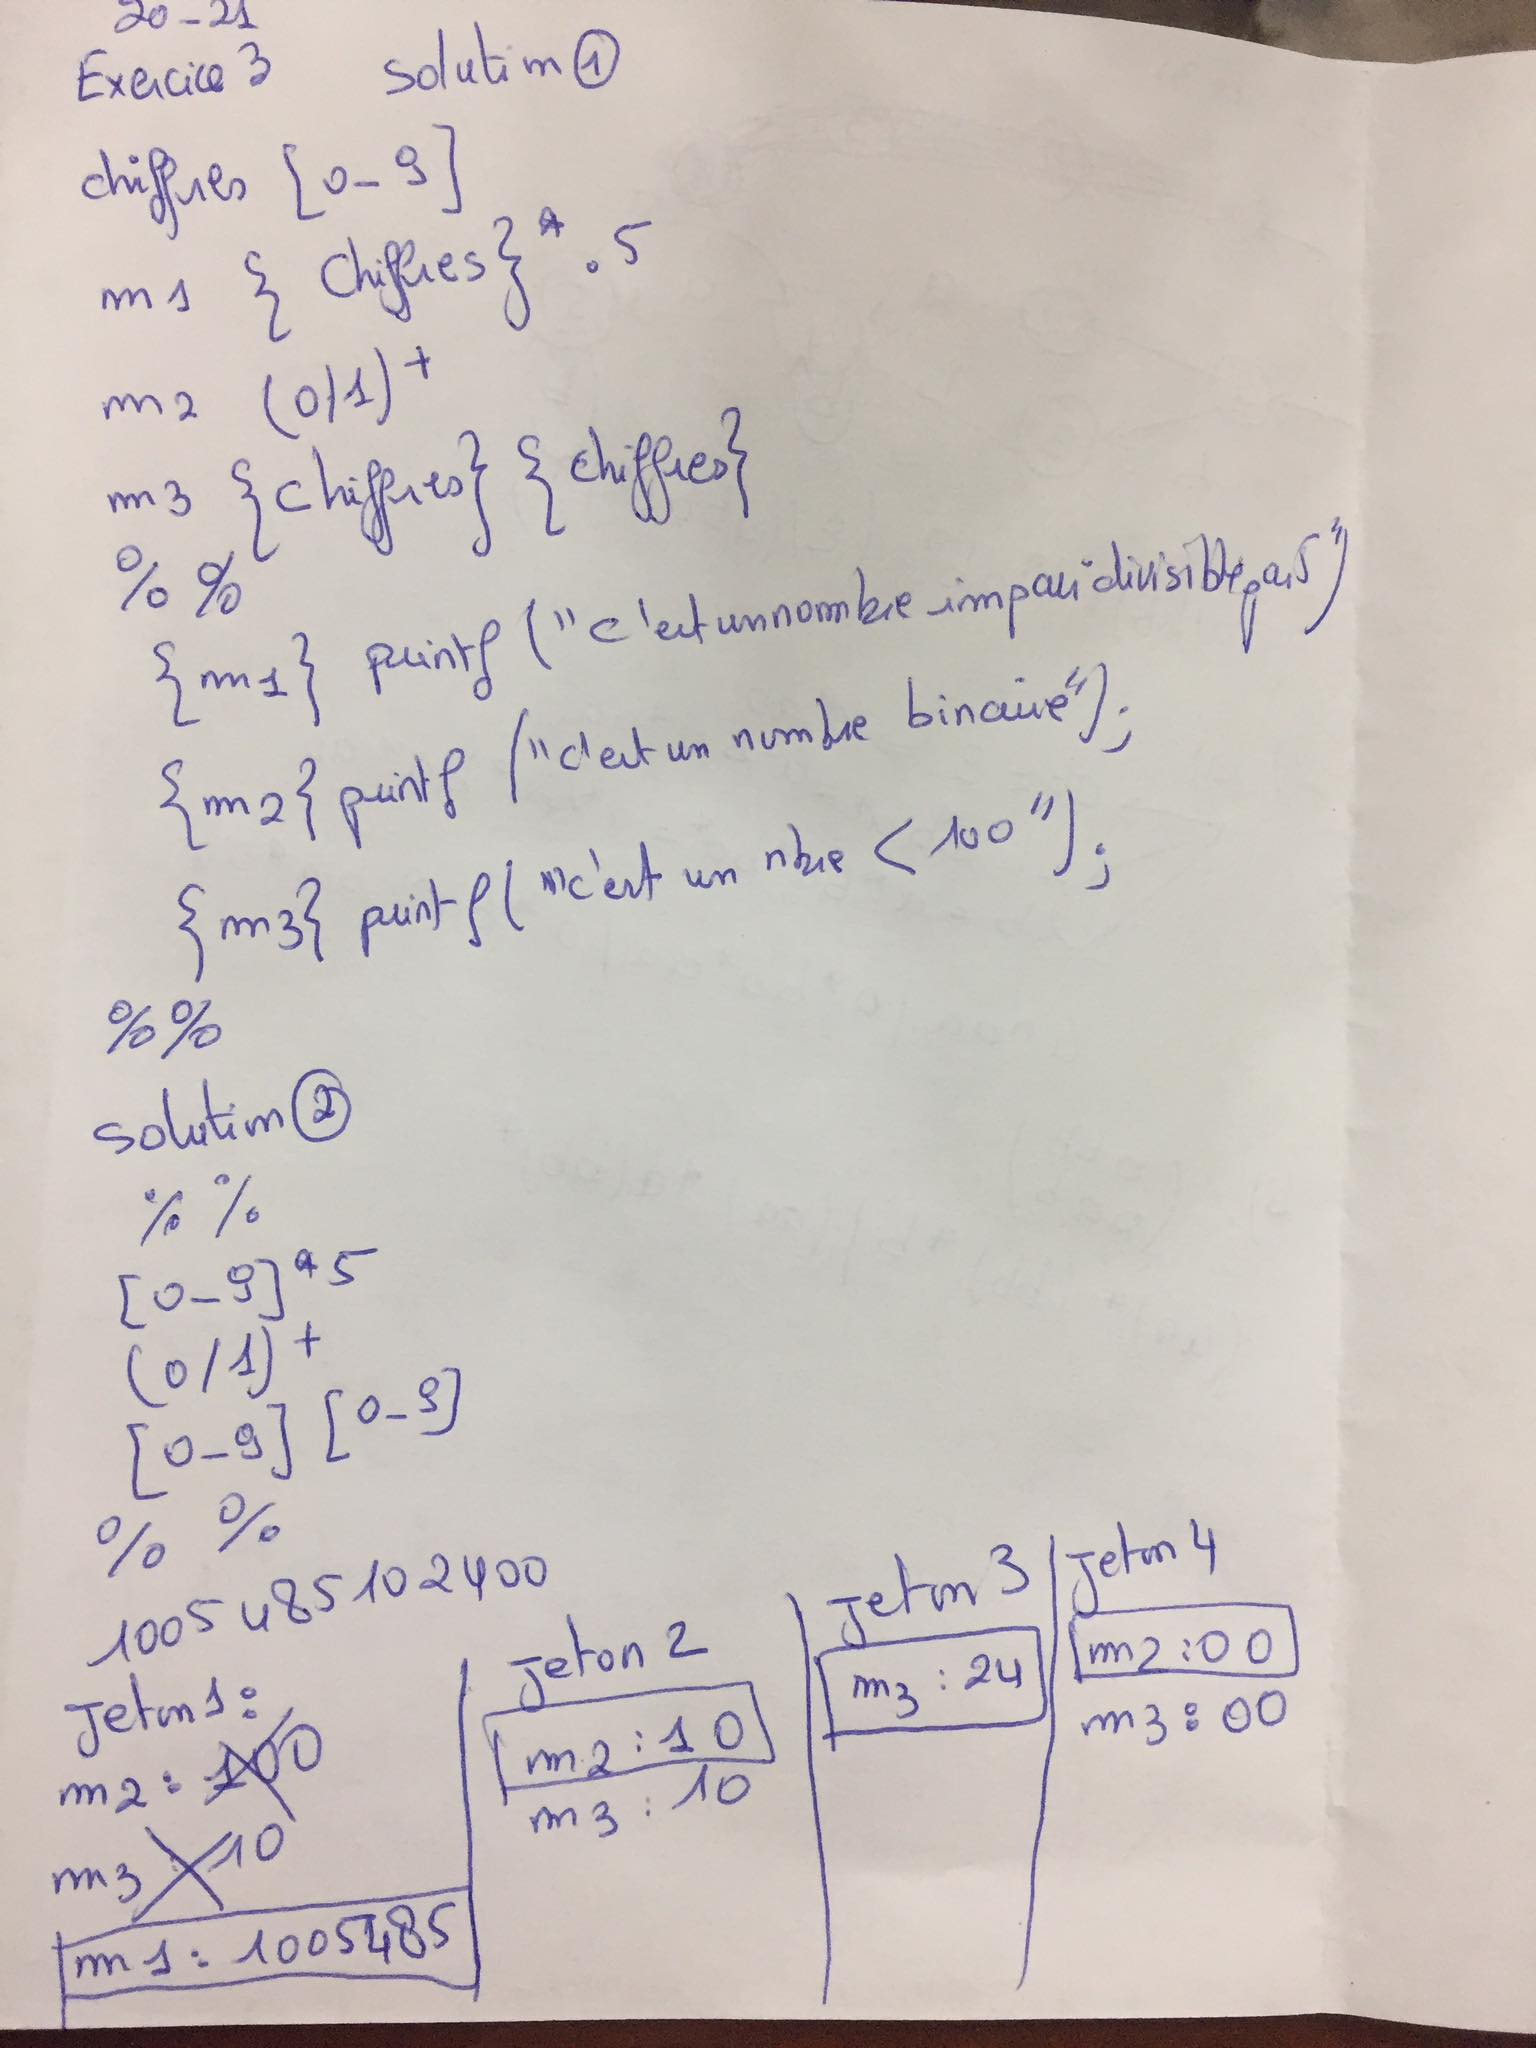 20-21
Exercice 3 solution ①
chiffres [0-9]
m1 {chiffres}* . 5
m2 (0/1)+
m3 {chiffres} {chiffres}
%%
{m1} printf ("c'est un nombre impair divisible par 5")
{m2} printf ("c'est un nombre binaire");
{m3} printf ("c'est un nbre < 100");
%%
solution ②
%%
[0-9]*5
(0/1)+
[0-9] [0-9]
%%
1005485102400
Jeton 1:
m2: 100
m3 10
m1: 1005485
Jeton 2
m2: 10
m3: 10
Jeton 3
m3: 24
Jeton 4
m2: 00
m3: 00